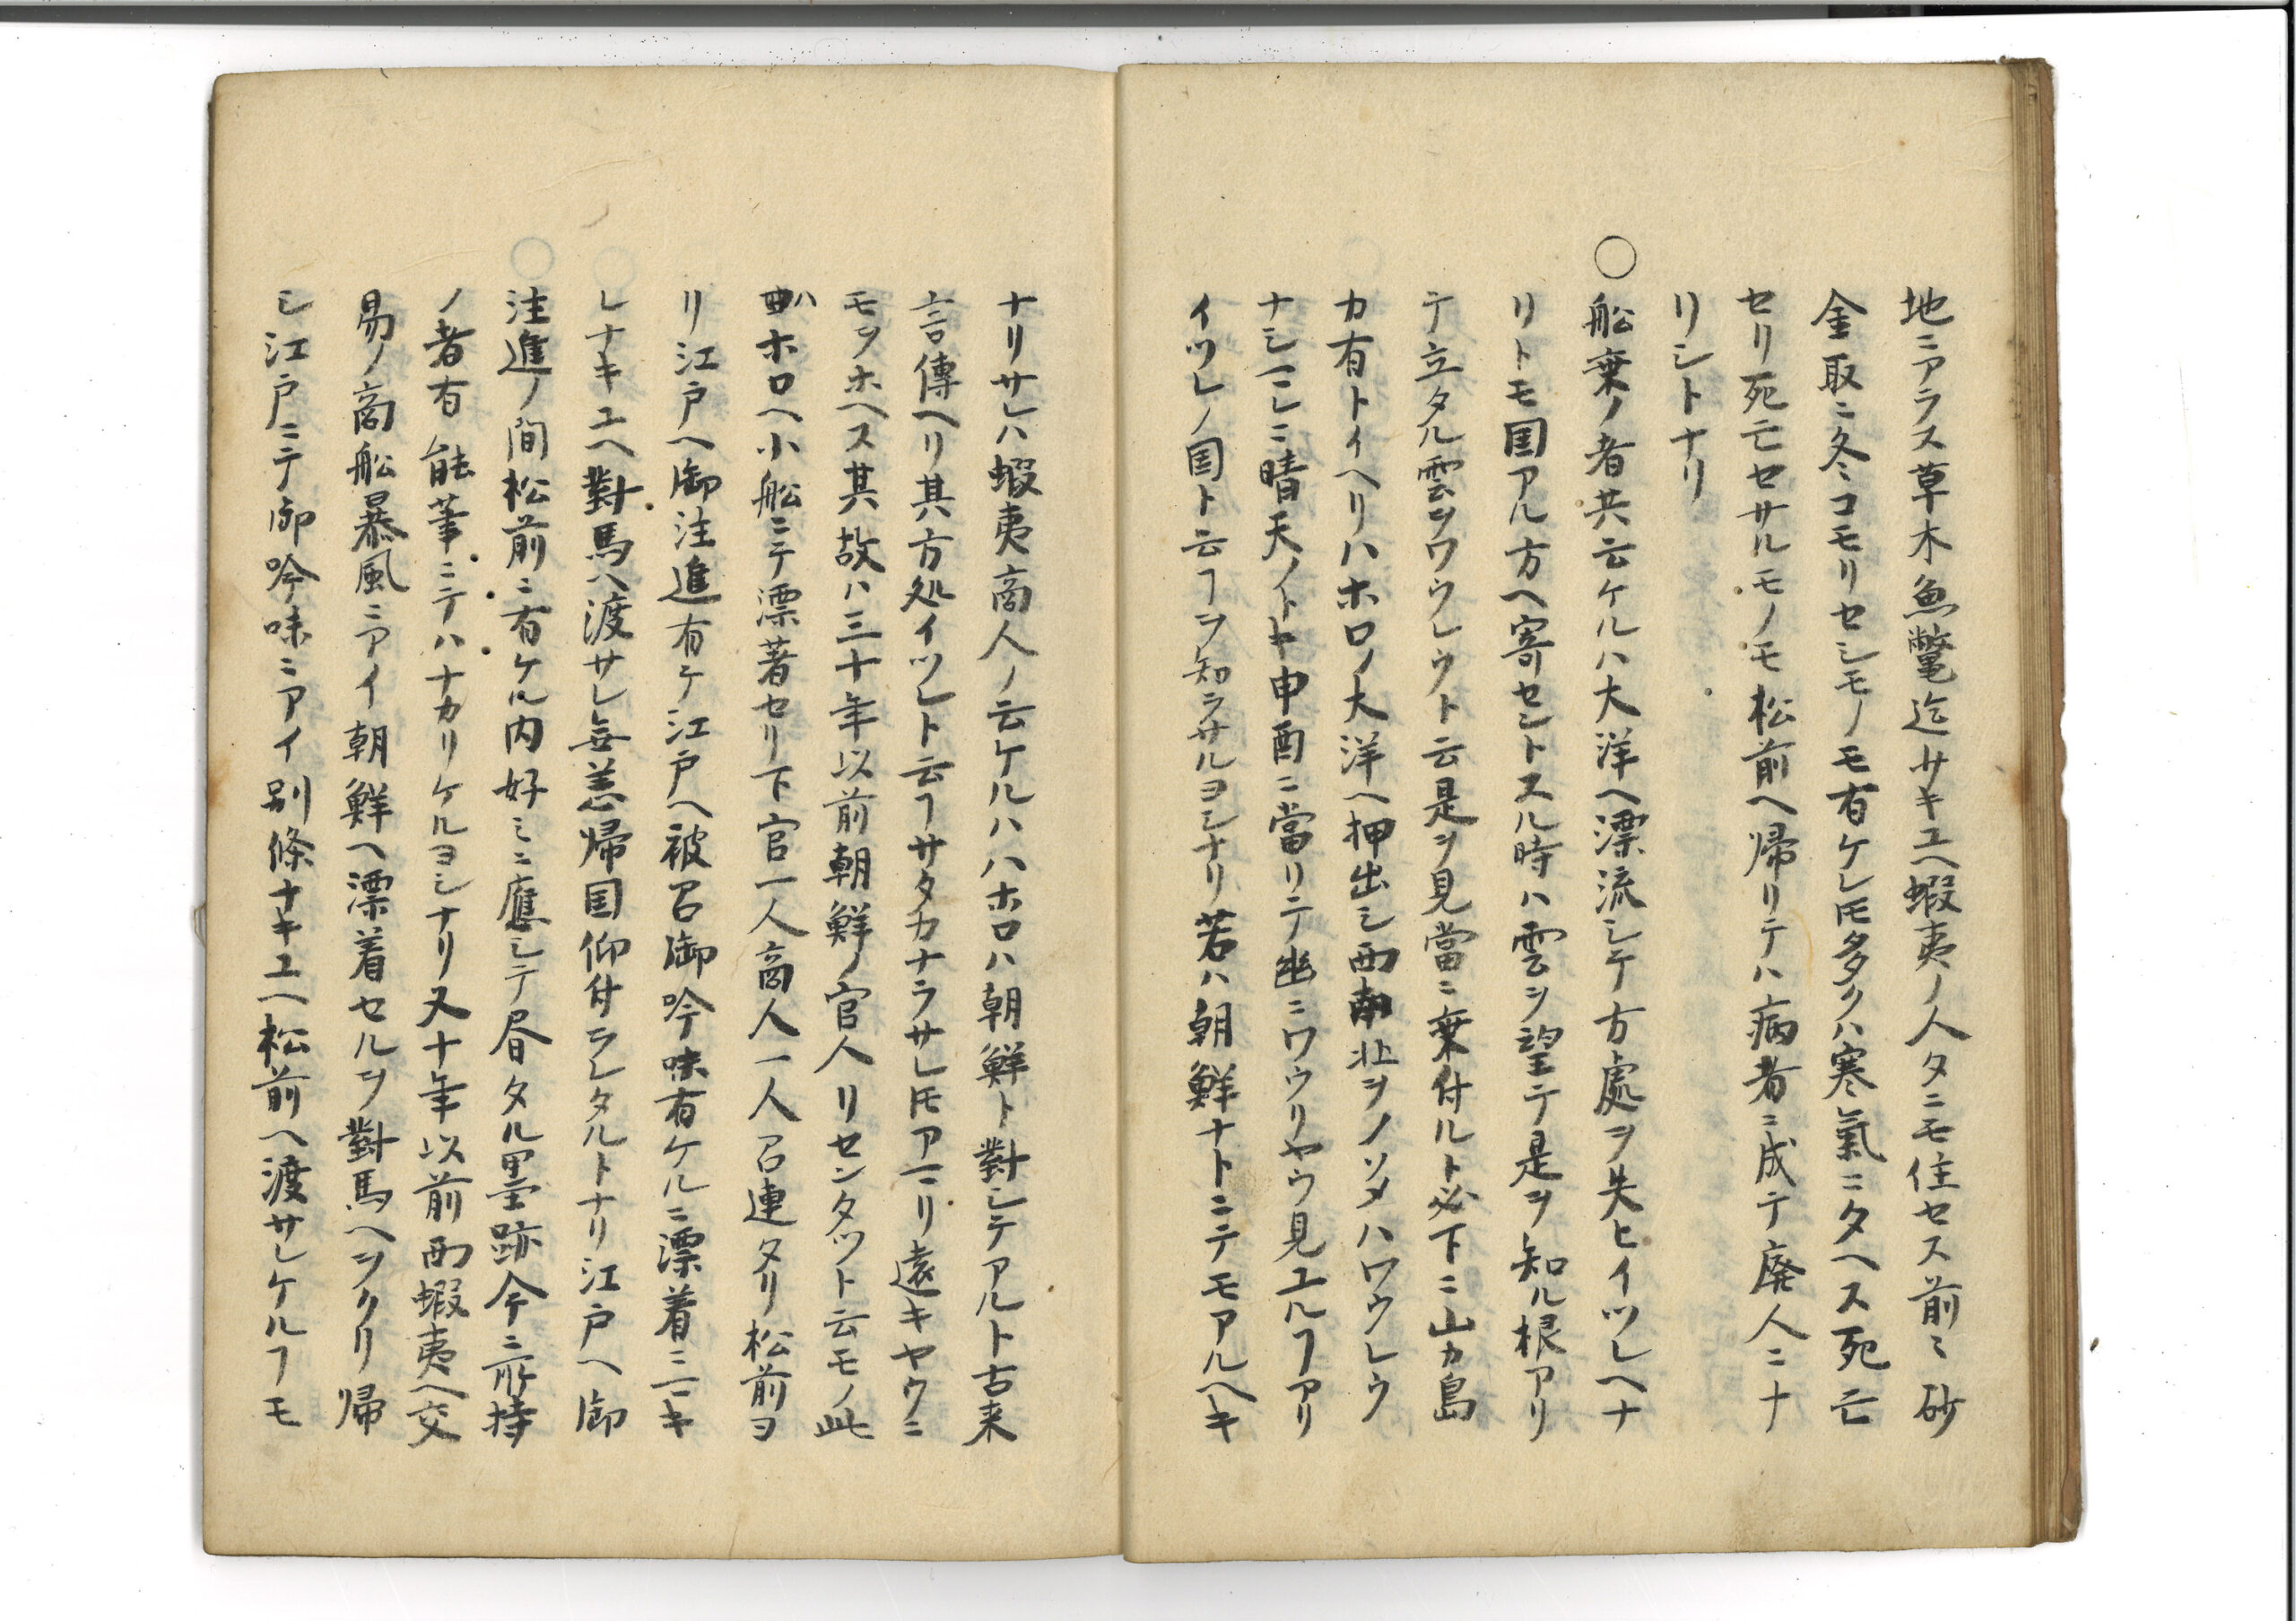 地ニアラス草木魚鼈迄サキユヘ蝦夷ノ人タニモ住セス前ミ砂
金取ニ冬コモリセシモノモ有ケレ𪜈多クハ寒氣ニタヘス死亡
セリ死亡セサルモノモ松前ヘ帰リテハ病者ニ成テ廃人ニナ
リシトナリ
○船乗ノ者共云ケルハ大洋ヘ漂流シテ方處ヲ失ヒイツレヘナ
リトモ国アル方ヘ寄セントスル時ハ雲ヲ望テ是ヲ知ル根アリ
テ立タル雲ヲワウレウト云是ヲ見當ニ乗付ルト必下ニ山カ島
カ有トイヘリハホロノ大洋ヘ押出シ西南北ヲノソメハワウレウ
ナシマレニ晴天ノトキ申酉ニ當リテ幽ニワウリヤウ見ユルヿアリ
イツレノ国ト云ヿヲ知ラサルヨシナリ若ハ朝鮮ナトニテモアルヘキ
ナリサレハ蝦夷商人ノ云ケルハハホロハ朝鮮ト對シテアルト古来
言傳ヘリ其方処イツレト云ヿサタカナラサレ𪜈アマリ遠キヤウニ
モヲホヘス其故ハ三十年以前朝鮮ノ官人リセンタツト云モノ此
ハホロヘ小船ニテ漂著セリ下官一人商人一人召連タリ松前ヨ
リ江戸ヘ御注進有テ江戸ヘ被召御吟味有ケルニ漂着ニマキ
レナキユヘ對馬ヘ渡サレ無恙帰国仰付ラレタルトナリ江戸ヘ御
○注進ノ間松前ニ有ケル内好ミニ應シテ昼タル墨跡今ニ所持
ノ者有能筆ニテハナカリケルヨシナリ又十年以前西蝦夷ヘ交
易ノ商船暴風ニアイ朝鮮ヘ漂着セルヲ對馬ヘヲクリ帰
シ江戸ニテ御吟味ニアイ別條ナキユヘ松前ヘ渡サレケルヿモ